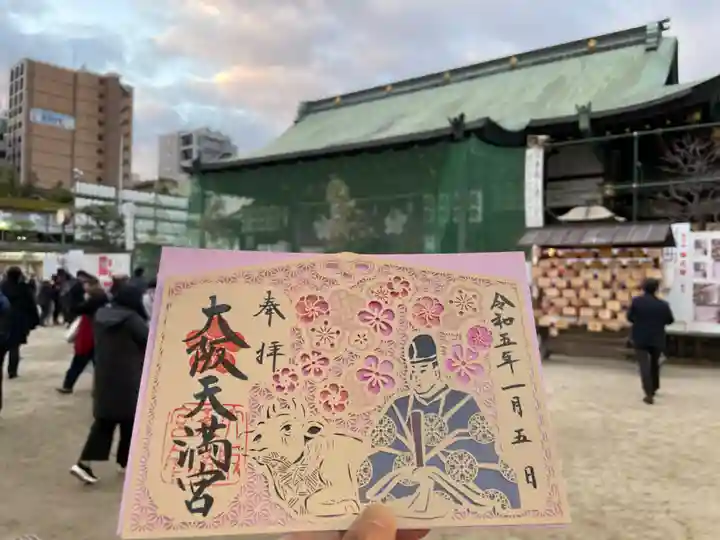 令和五年一月五日
奉拝
大阪天満宮